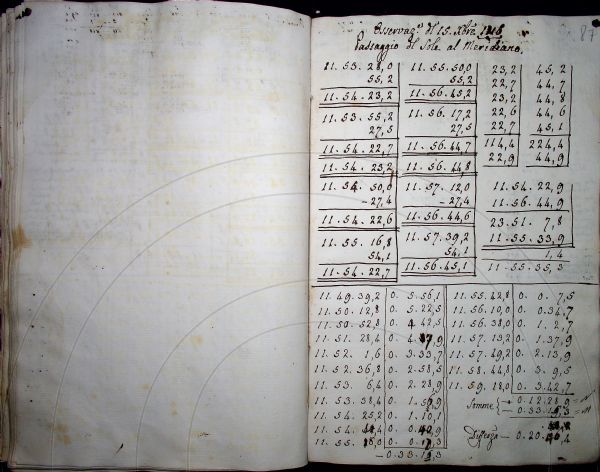 87
Osservaz.e del 15. Xbre 1816
Passaggio del Sole al Meridiano.
11. 53. 28,0 11. 55. 50,0 23,2 45,2
55,2 55,2 22,7 44,7
11. 54. 23,2 11. 56. 45,2 23,2 44,8
11. 53. 55,2 11. 56. 17,2 22,6 44,6
27,5 27,5 22,7 45,1
11. 54. 22,7 11. 56. 44,7 114,4 224,4
11. 54. 23,2 11. 56. 44,8 22,9 44,9
11. 54. 50,0 11. 57. 12,0 11. 54. 22,9
- 27,4 - 27,4 11. 56. 44,9
11. 54. 22,6 11. 56. 44,6 23. 51. 7,8
11. 55. 16,8 11. 57. 39,2 11. 55. 33,9
54,1 54,1 1,4
11. 54. 22,7 11. 56. 45,1 11. 55. 35,3
11. 49. 39,2 0. 5. 56,1 11. 55. 42,8 0. 0. 7,5
11. 50. 12,8 0. 5. 22,5 11. 56. 10,0 0. 0. 34,7
11. 50. 52,8 0. 4. 42,5 11. 56. 38,0 0. 1. 2,7
11. 51. 28,4 0. 4. 11. 57. 13,2 0. 1. 37,9
11. 52. 1,6 0. 3. 33,7 11. 57. 49,2 0. 2. 13,9
11. 52. 36,8 0. 2. 58,5 11. 58. 44,8 0. 3. 9,5
11. 53. 6,4 0. 2. 28,9 11. 59. 18,0 0. 3. 42,7
11. 53. 38,4 0. 1. Somme + 0. 12. 28,9
11. 54. 25,2 0. 1. 10,1 - 0. 33.
11. 54. 0. 0.
11. 55. 0. 0. Differenza - 0. 20.
- 0. 33.